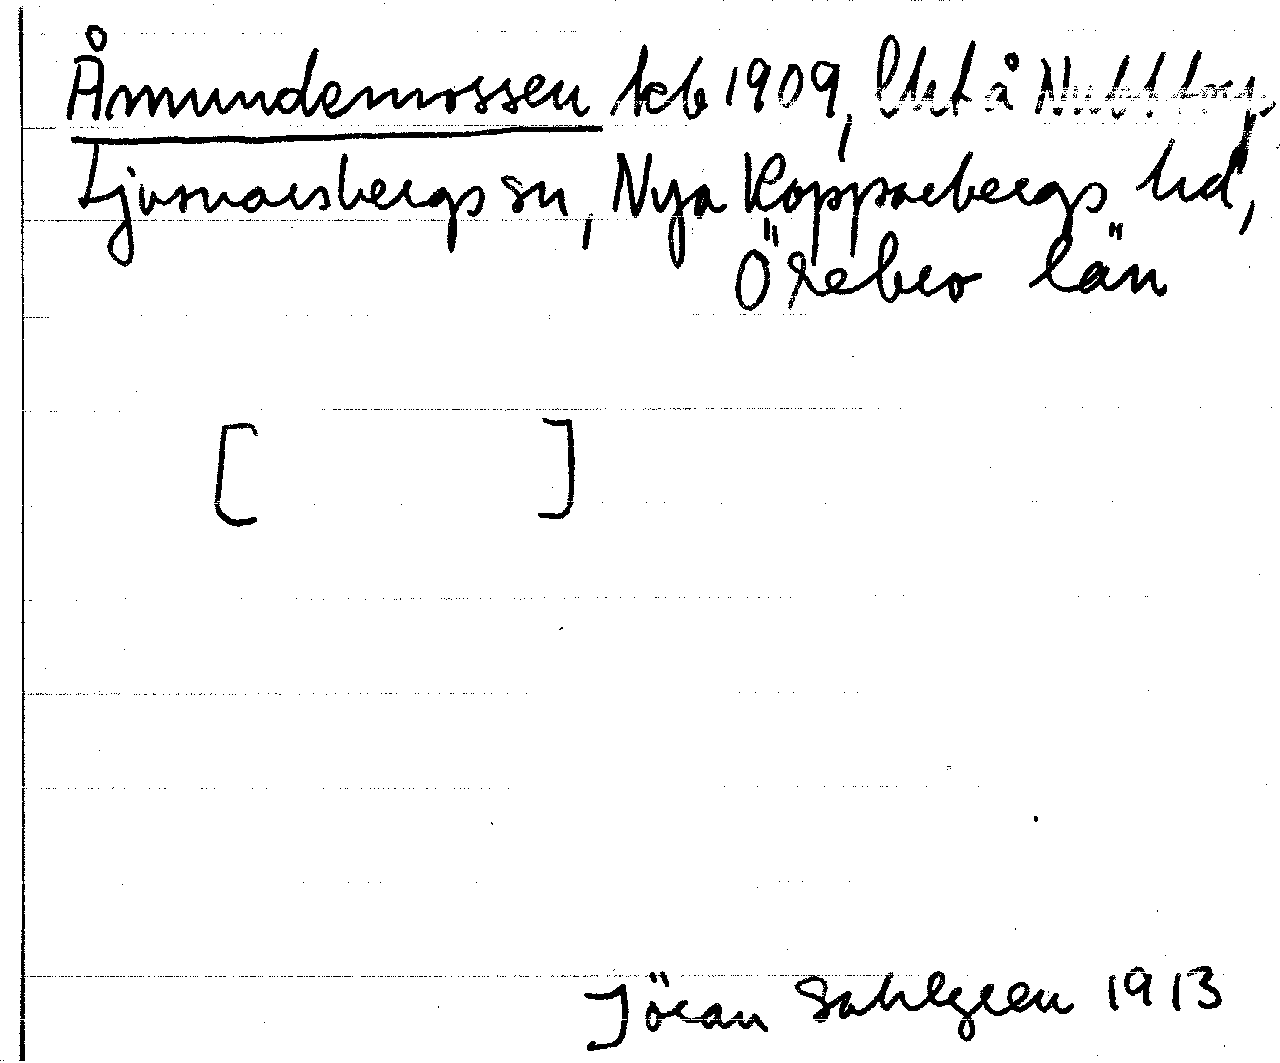 Åmundemossen kb 1909, lht å
Ljusnarsbergs sn, Nya Kopparbergs hd,
Örebro län
[ ]
Jöran Sahlgren 1913